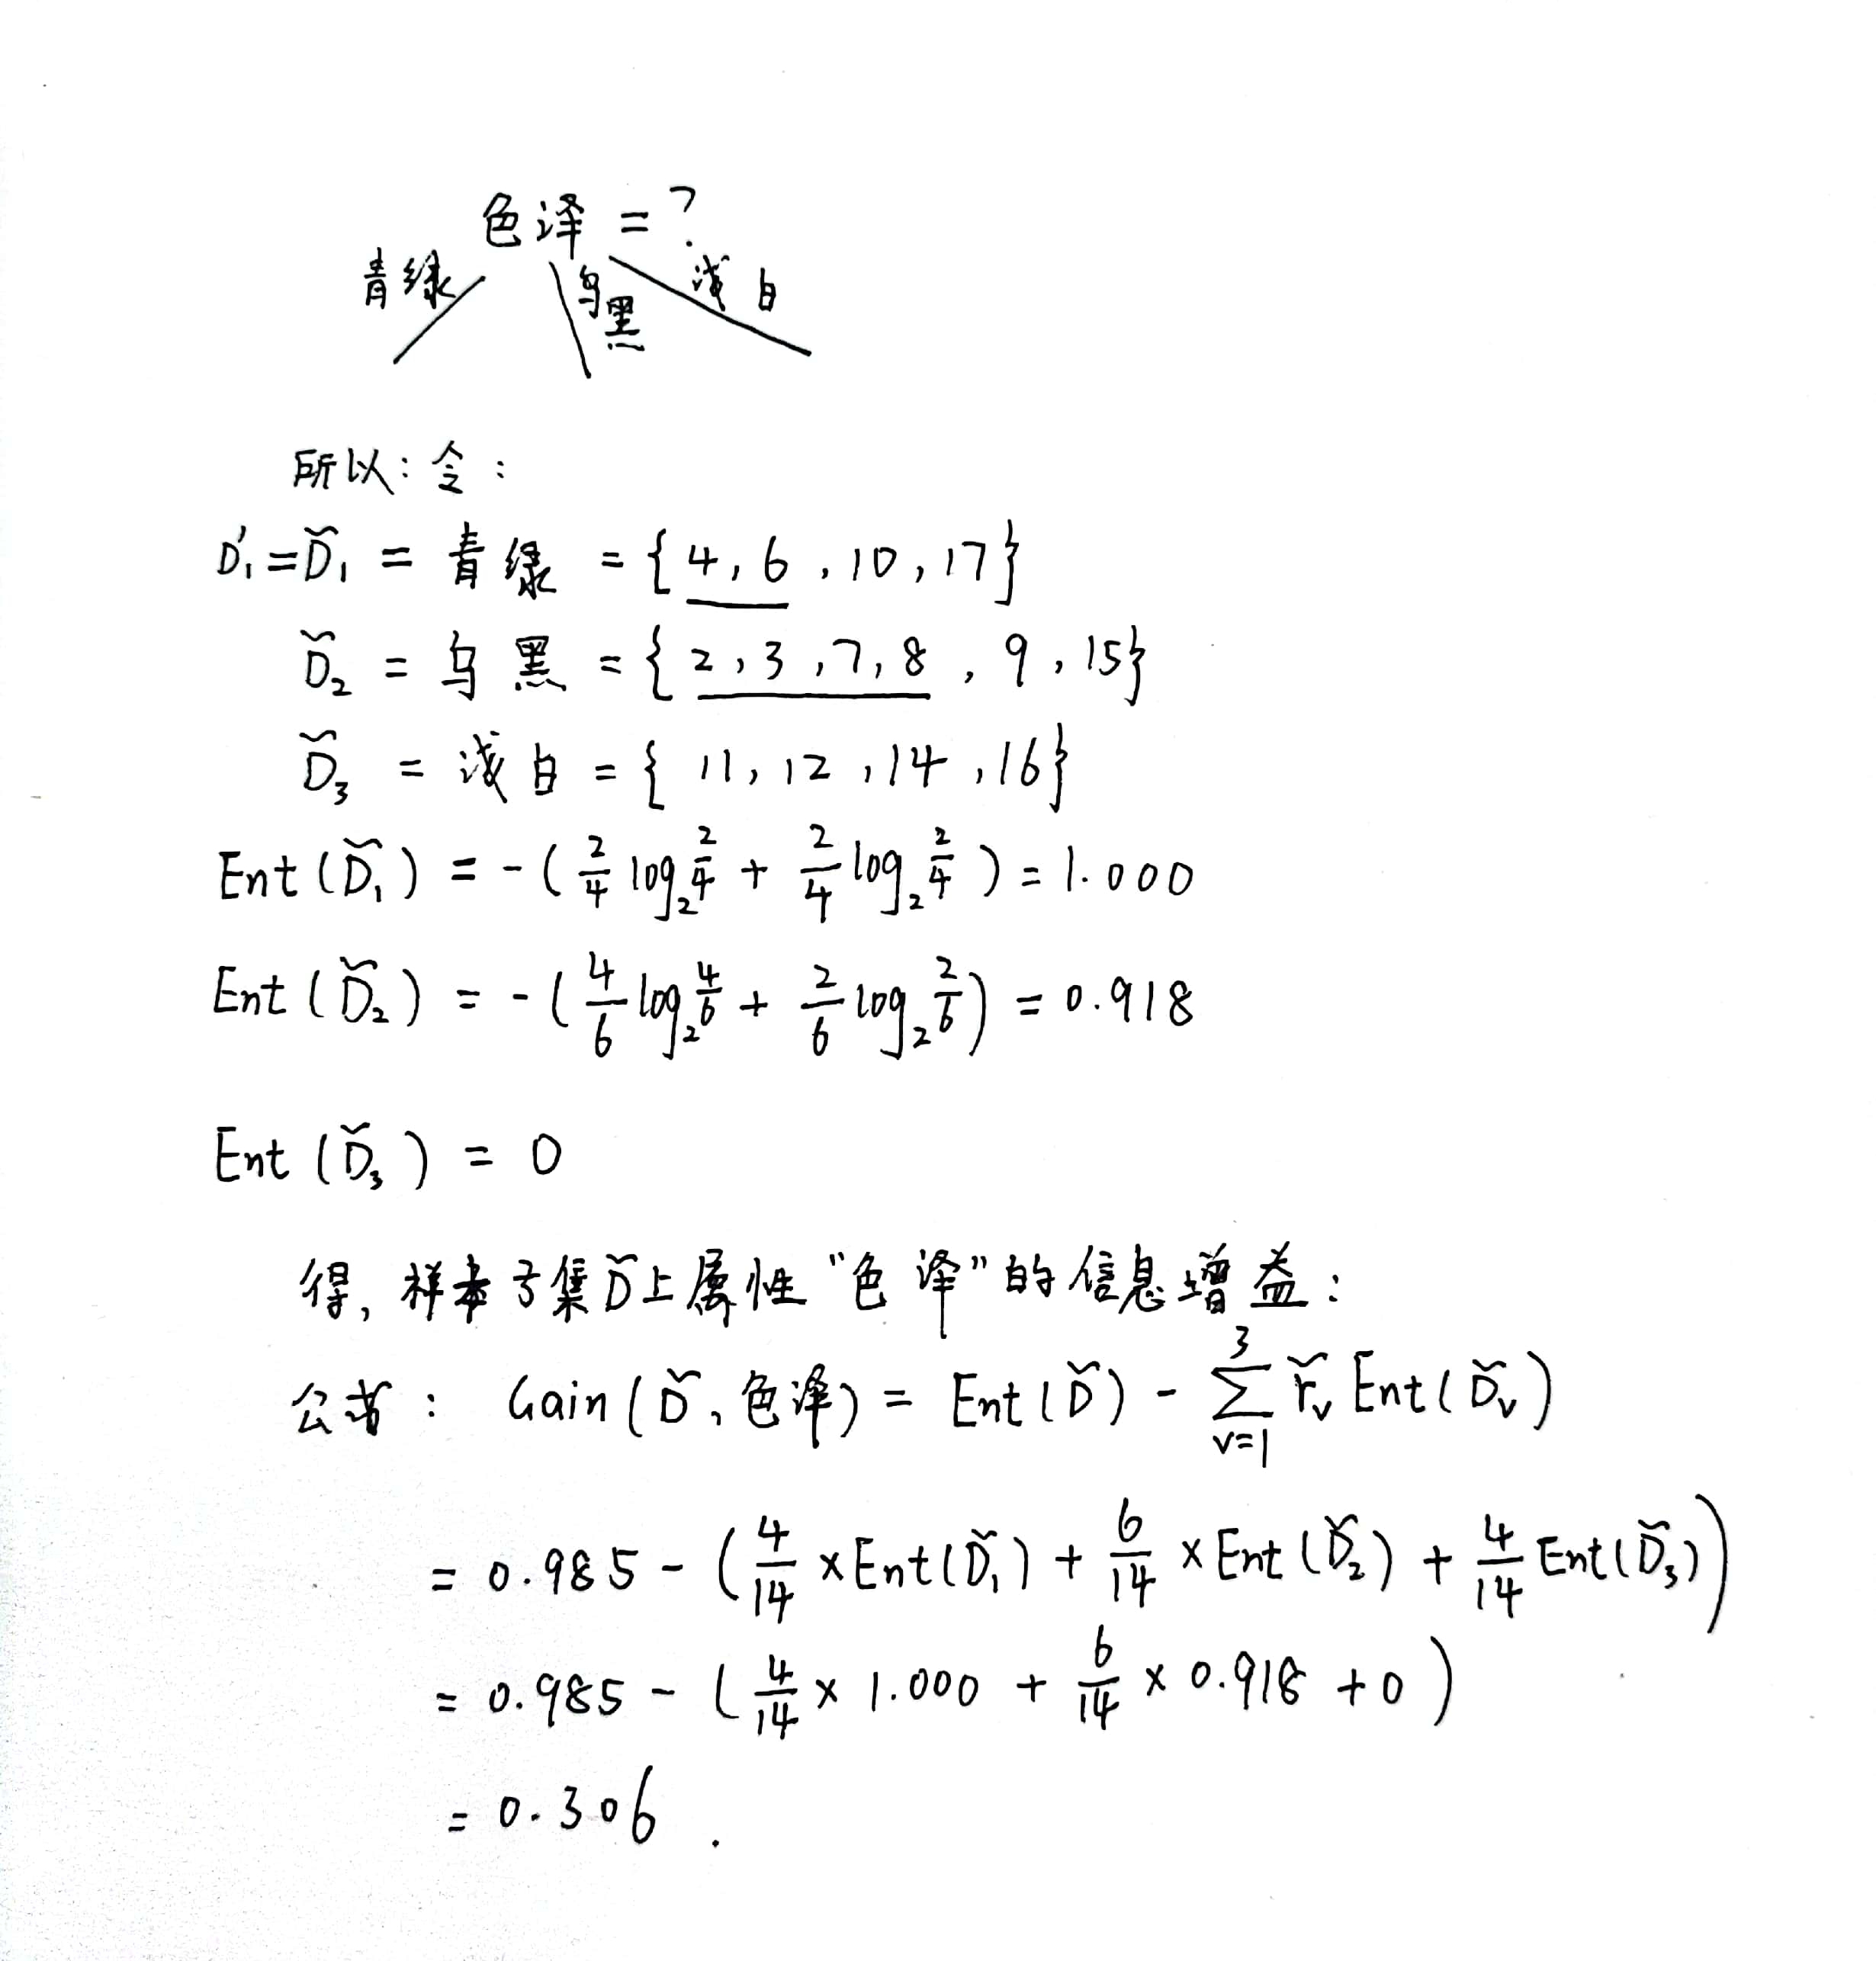 色泽 = ?
青绿 乌黑 浅白
所以: 令:
D'₁ = D̃₁ = 青绿 = {4, 6, 10, 17}
D̃₂ = 乌黑 = {2, 3, 7, 8, 9, 15}
D̃₃ = 浅白 = {11, 12, 14, 16}
Ent(D̃₁) = -(2/4 log₂ 2/4 + 2/4 log₂ 2/4) = 1.000
Ent(D̃₂) = -(4/6 log₂ 4/6 + 2/6 log₂ 2/6) = 0.918
Ent(D̃₃) = 0
得, 样本子集D̃上属性“色泽”的信息增益:
公式: Gain(D̃, 色泽) = Ent(D̃) - ∑_{v=1}^{3} r̃ᵥ Ent(D̃ᵥ)
= 0.985 - (4/14 × Ent(D̃₁) + 6/14 × Ent(D̃₂) + 4/14 Ent(D̃₃))
= 0.985 - (4/14 × 1.000 + 6/14 × 0.918 + 0)
= 0.306.